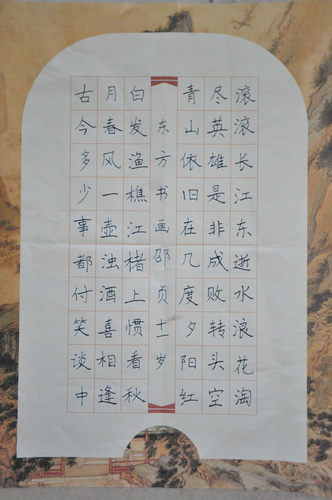 滚滚长江东逝水浪花淘
尽英雄是非成败转头空
青山依旧在几度夕阳红
东方书画邵贞十一岁
白发渔樵江楮上惯看秋
月春风一壶浊酒喜相逢
古今多少事都付笑谈中